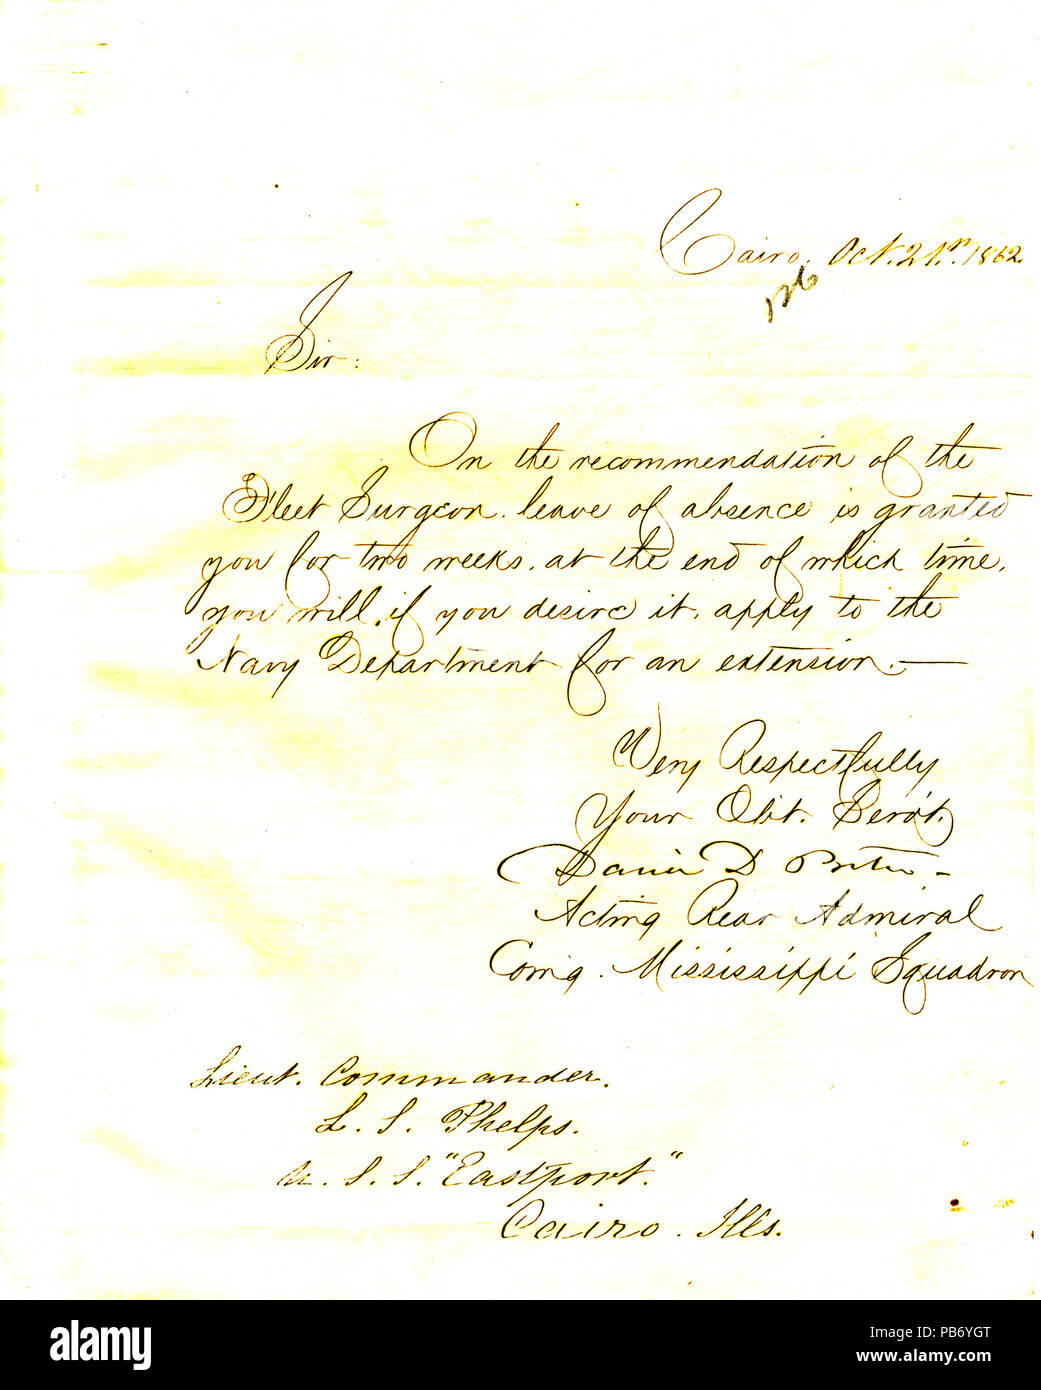 Cairo. Oct. 21st. 1862.
126
Sir:
On the recommendation of the
Fleet Surgeon. leave of absence is granted
you for two weeks. at the end of which time.
you will, if you desire it, apply to the
Navy Department for an extension.—
Very Respectfully
Your Obt. Servt.
David D Porter
Acting Rear Admiral
Comg. Mississippi Squadron
Lieut. Commander.
S. L. Phelps.
U. S. S. "Eastport."
Cairo. Ills.
alamy
a
a
a
alamy
Image ID: PB6YGT
www.alamy.com